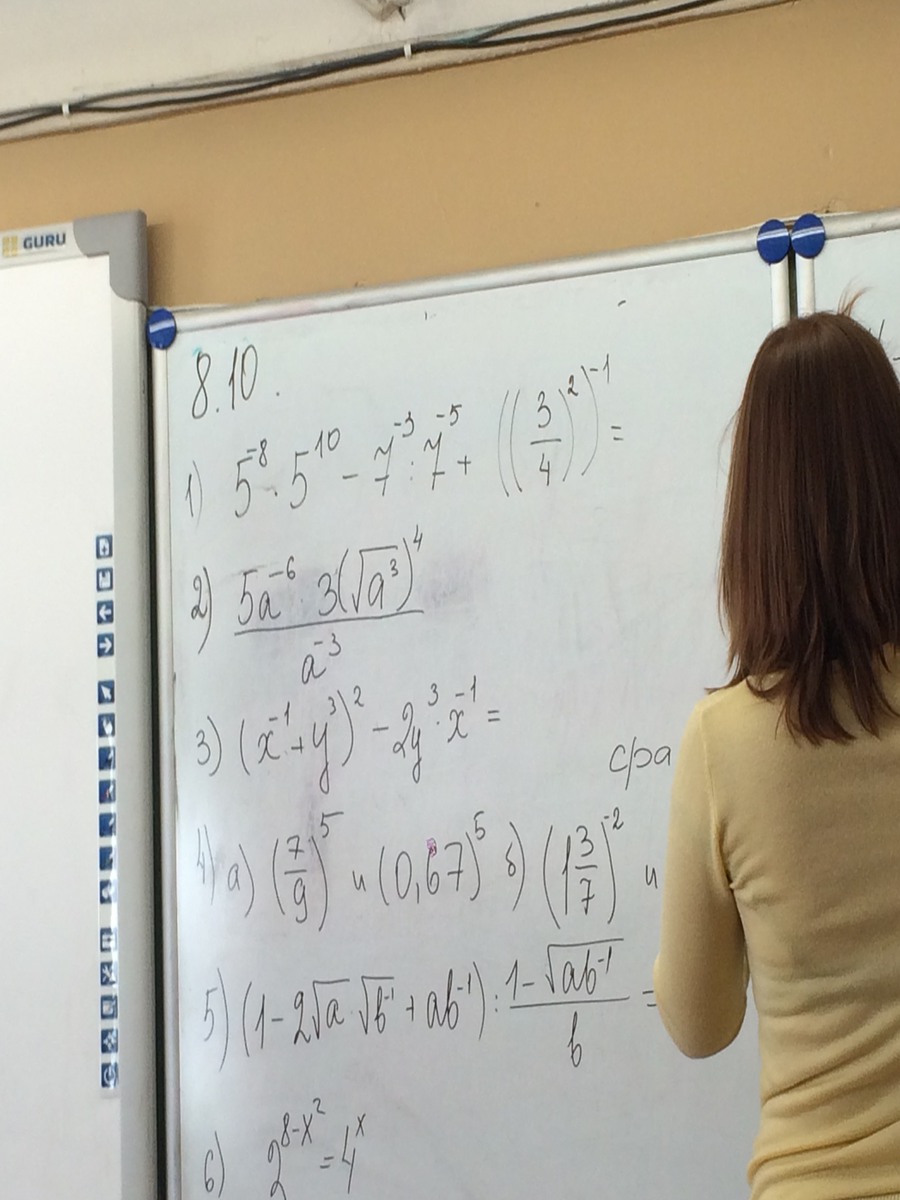 GURU
8.10.
1) 5^{-8} · 5^{10} - 7^{-3} : 7^{-5} + ((3/4)^2)^{-1} =
2) (5a^{-6} · 3(√a^3)^4) / a^{-3}
3) (x^{-1} + y^3)^2 - 2y^3 · x^{-1} =
4) а) (7/9)^5 и (0,67)^5 б) (1 3/7)^{-2} и
5) (1 - 2√a · √b^{-1} + ab^{-1}) : (1 - √ab^{-1}) / b =
6) 2^{8-x^2} = 4^x